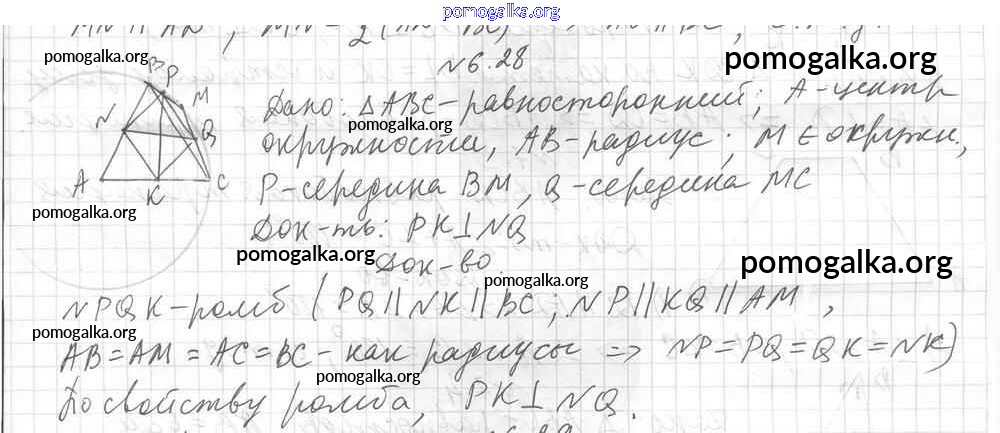 pomogalka.org
N 6.28
pomogalka.org pomogalka.org
B P M N Q A K C
Дано: ΔABC - равносторонний; A - центр
pomogalka.org
окружности, AB - радиус; M ∈ окружн.,
pomogalka.org
P - середина BM, Q - середина MC
pomogalka.org
Док-ть: PK ⊥ NQ
pomogalka.org
Док-во.
pomogalka.org
pomogalka.org
NPQK - ромб (PQ || NK || BC; NP || KQ || AM,
pomogalka.org
AB = AM = AC = BC - как радиусы => NP = PQ = QK = NK)
pomogalka.org
По свойству ромба, PK ⊥ NQ.